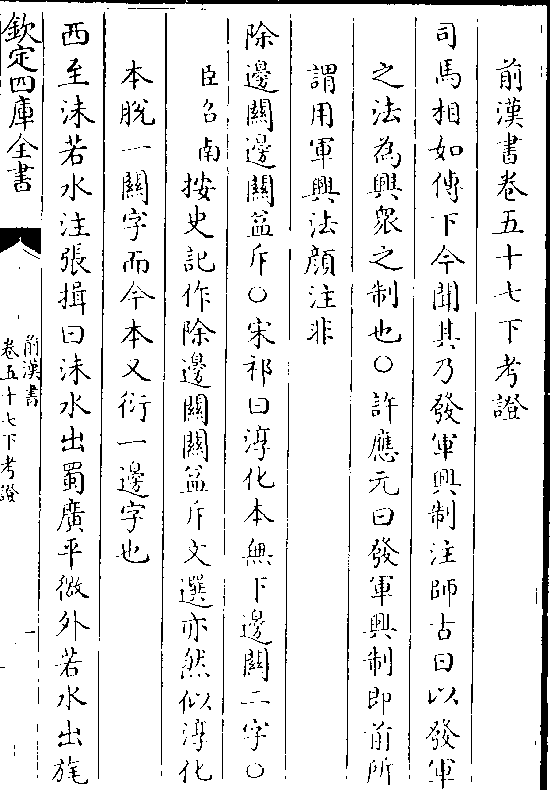 前漢書卷五十七下考證
司馬相如傳下今聞其乃發軍興制注師古曰以發軍
之法為興衆之制也○許應元曰發軍興制即前所
謂用軍興法顔注非
除邊關邊關益斥○宋祁曰淳化本無下邊關二字○
臣召南按史記作除邊關關益斥文選亦然似淳化
本脫一關字而今本又衍一邊字也
西至沬若水注張揖曰沬水出蜀廣平徼外若水出旄
欽定四庫全書
前漢書
卷五十七下考證
一